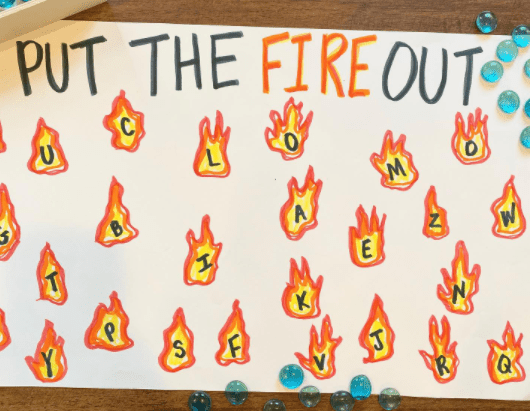 PUT THE FIRE OUT
U C L O M D
G B I A E Z W
T K N
Y P S F V J R Q